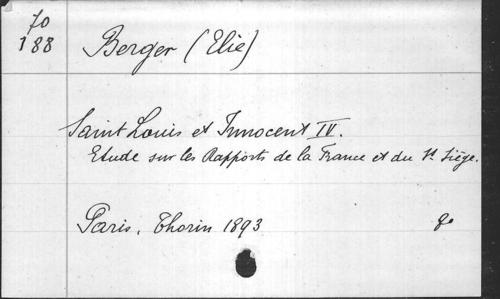 70
188
Berger (Elie)
Saint Louis et Innocent IV.
Etude sur les Rapports de la France et du St Siège.
Paris, Thorin 1893